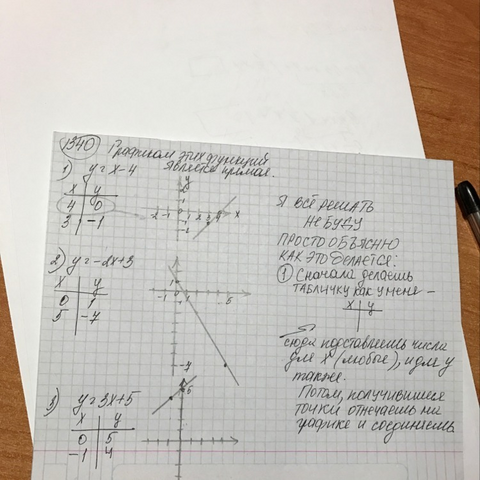 1340
Графиком этих функций
является прямая.
1) y = x - 4
x | y
4 | 0
3 | -1
2) y = -2x+3
x | y
0 | 1
5 | -7
3) y = 3x+5
x | y
0 | 5
-1 | 4
Я ВСЁ РЕШАТЬ
НЕ БУДУ
ПРОСТО ОБЪЯСНЮ
КАК ЭТО ДЕЛАЕТСЯ:
1 Сначала делаешь
ТАБЛИЧКУ как у меня -
x | y
сюда подставляешь числа
для x (любые), и для y
также.
Потом, получившиеся
точки отмечаешь на
графике и соединяешь